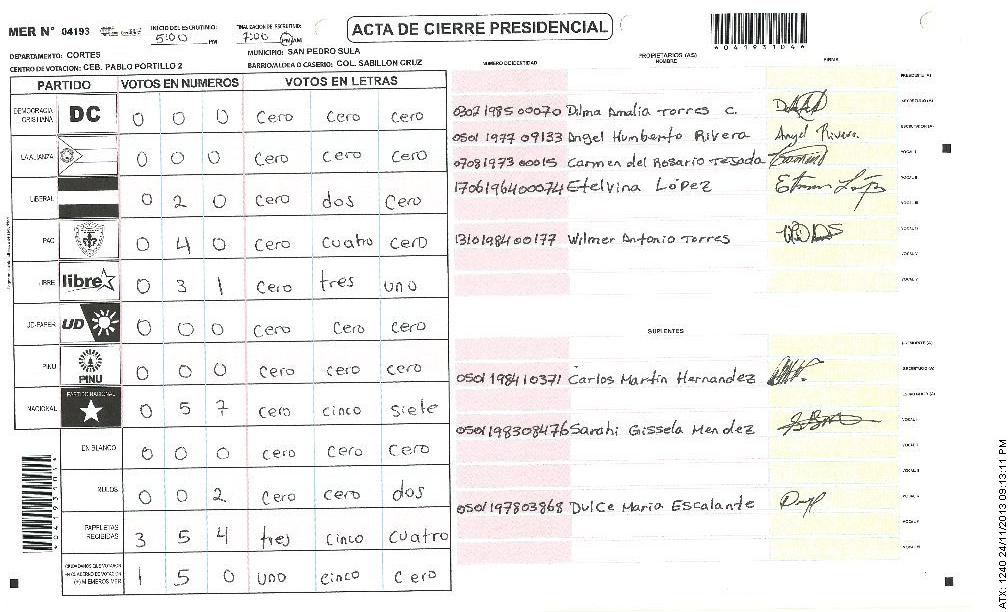 MER N° 04193
INICIO DEL ESCRUTINIO:
5:00 PM
FINALIZACION DE ESCRUTINIO
7:00 PM AM
ACTA DE CIERRE PRESIDENCIAL
DEPARTAMENTO: CORTES
MUNICIPIO: SAN PEDRO SULA
CENTRO DE VOTACION: CEB. PABLO PORTILLO 2
BARRIO/ALDEA O CASERIO: COL. SABILLON CRUZ
PARTIDO VOTOS EN NUMEROS VOTOS EN LETRAS
DEMOCRACIA CRISTIANA DC 0 0 0 Cero Cero Cero
LA ALIANZA 0 0 0 Cero Cero Cero
LIBERAL 0 2 0 Cero dos Cero
PAC 0 4 0 Cero Cuatro Cero
LIBRE libre 0 3 1 Cero tres uno
UD-FAPER UD 0 0 0 Cero Cero Cero
PINU PINU 0 0 0 Cero Cero Cero
NACIONAL PARTIDO NACIONAL 0 5 7 Cero cinco Siete
EN BLANCO 0 0 0 Cero Cero Cero
NULOS 0 0 2 Cero Cero dos
PAPELETAS RECIBIDAS 3 5 4 tres cinco cuatro
1 5 0 uno cinco Cero
NUMERO DE IDENTIDAD PROPIETARIOS (AS) NOMBRE FIRMA
0302 1985 00070 Dilma Amalia Torres C.
0501 1977 09133 Angel Humberto Rivera Angel Rivera
0708 1973 00015 Carmen del Rosario Tesada
1706196400074 Etelvina López
1310198400177 Wilmer Antonio Torres
SUPLENTES
0501 198410371 Carlos Martin Hernandez
0501198308476 Sarahi Gissela Mendez
0501197803868 Dulce Maria Escalante
ATX: 1240 24/11/2013 09:13:11 PM